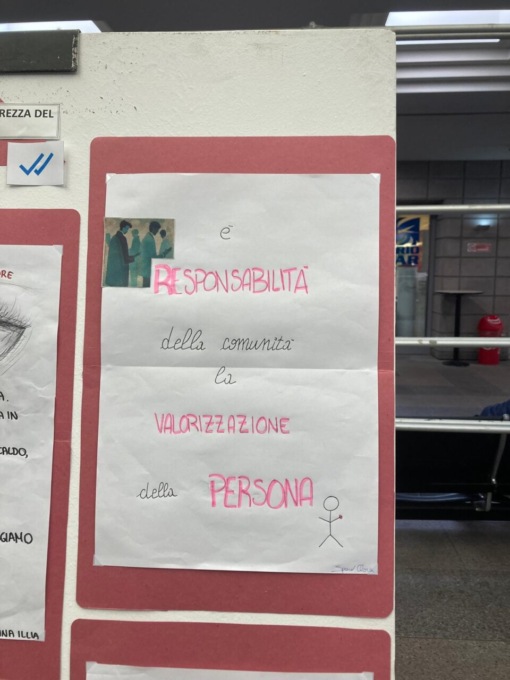 REZZA DEL
è
RESPONSABILITÀ
della comunità
la
VALORIZZAZIONE
della PERSONA
ORE
A.
A IN
CALDO,
GIAMO
INA ILLIA